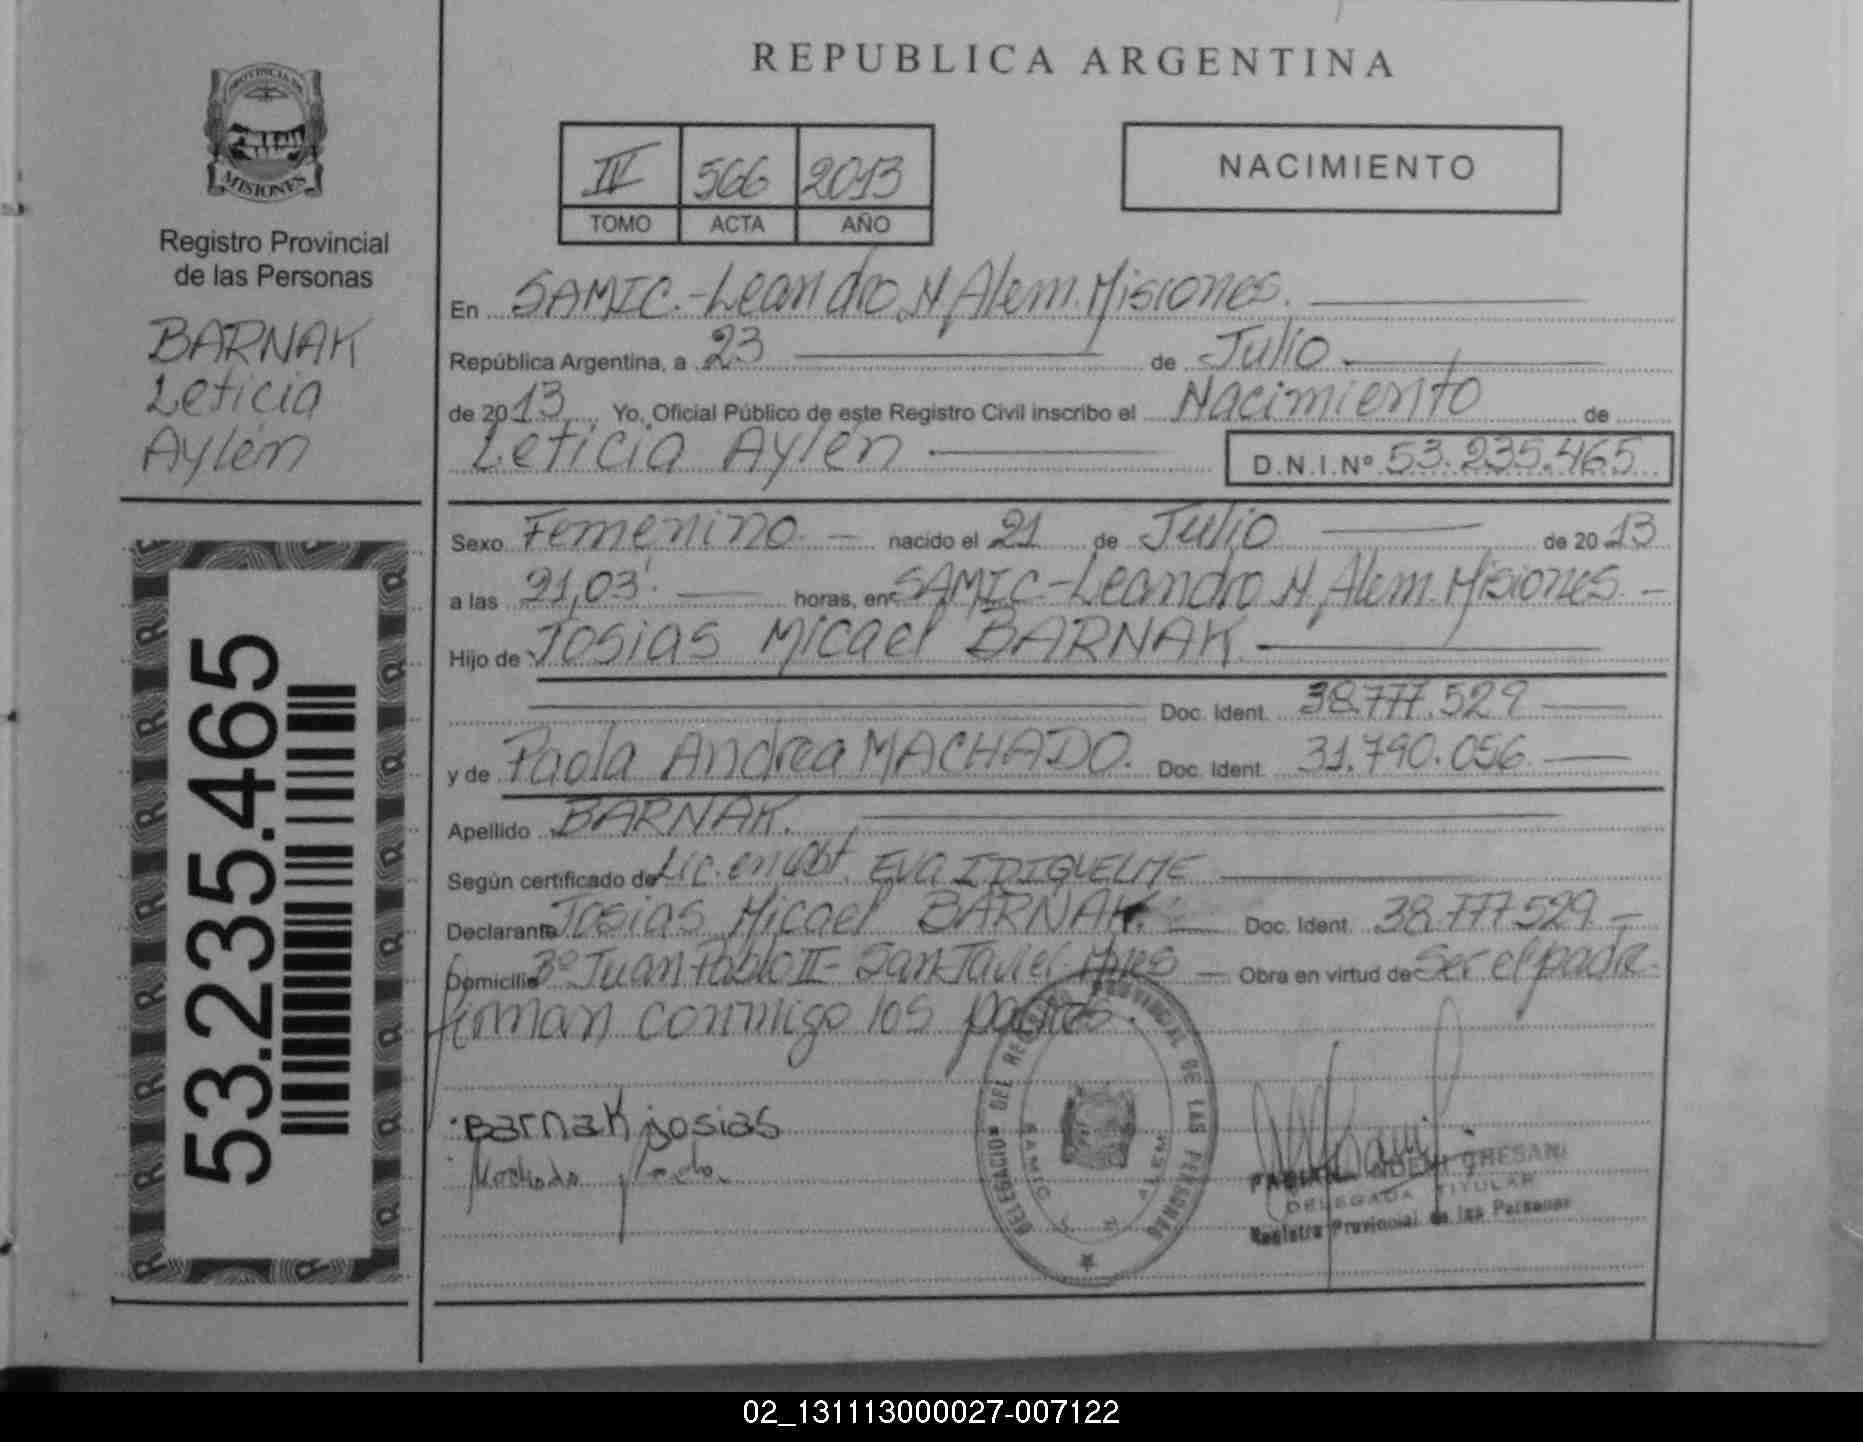 REPUBLICA ARGENTINA
PROVINCIA DE
MISIONES
Registro Provincial
de las Personas
BARNAK
Leticia
Aylén
53.235.465
IV 566 2013
TOMO ACTA AÑO
NACIMIENTO
En SAMIC.-Leandro N Alem.Misiones.
República Argentina, a 23 de Julio
de 2013, Yo, Oficial Público de este Registro Civil inscribo el Nacimiento de
Leticia Aylén D.N.I.Nº 53.235.465
Sexo Femenino. nacido el 21 de Julio de 2013
a las 21,03'. horas, en SAMIC-Leandro N. Alem.Misiones.
Hijo de Josias Micael BARNAK
Doc. Ident. 38.777.529
y de Paola Andrea MACHADO. Doc. Ident. 31.790.056
Apellido BARNAK.
Según certificado de Lic. en obst. EVA I
Declarante Josias Micael BARNAK. Doc. Ident. 38.777.529
Domicilio Bº Juan Pablo II- San Javier-Mnes Obra en virtud de Ser el padre
firman conmigo los padres.
Barnak josias
Machado Paola
DELEGACION DEL REGISTRO PROVINCIAL DE LAS PERSONAS
SAMIC L N ALEM
NOEMI
DELEGADA TITULAR
Registro Provincial de las Personas
02_131113000027-007122